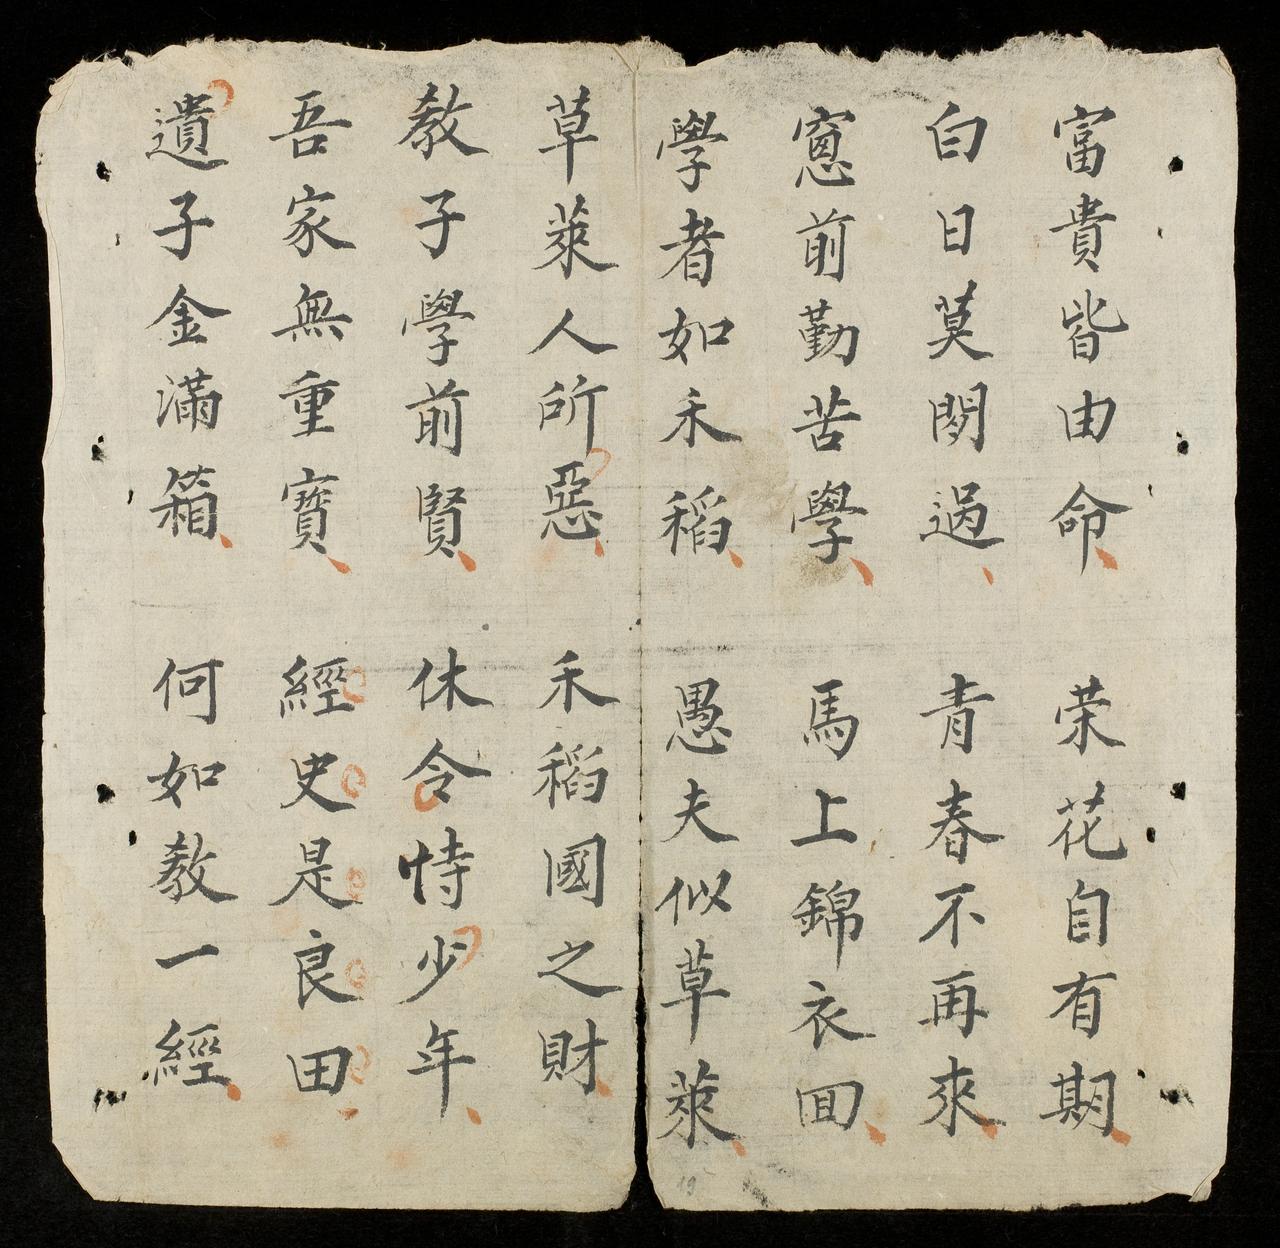 富貴皆由命 荣花自有期
白日莫閑過 青春不再來
窓前勤苦學 馬上錦衣囬
學者如禾稻 愚夫似草萊
草萊人所惡 禾稻國之財
教子學前賢 休令恃少年
吾家無重寶 經史是良田
遺子金滿箱 何如教一經
19